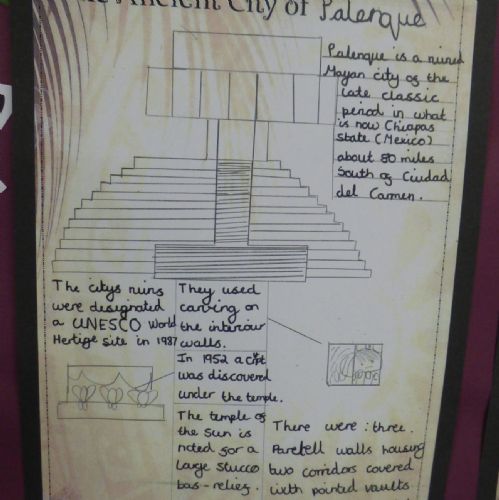 Ancient City of Palenque
Palenque is a ruined
Mayan city of the
late classic
period in what
is now Chiapas
state (Mexico)
about 80 miles
South of Ciudad
del Carmen.
The citys ruins
were designated
a UNESCO World
Hertige site in 1987
They used
carving on
the interiour
walls.
In 1952 a cript
was discovered
under the temple.
The temple of
the Sun is
noted for a
large Stucco
bas-relief.
There were three
Parefell walls housing
two corridors covered
with pointed vaults